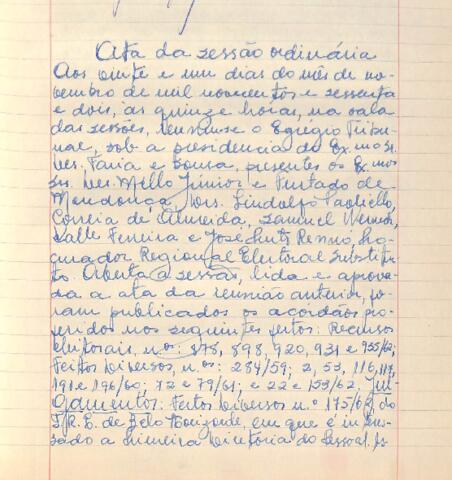 Ata da sessão ordinária
Aos vinte e um dias do mês de no-
vembro de mil novecentos e sessenta
e dois, às quinze horas, na sala
das sessões, reuniu-se o Egrégio Tribu-
nal, sob a presidencia do Ex.mo Sr.
Des. Faria e Sousa, presentes os Ex.mos
Srs. Des. Mello Júnior e Furtado de
Mendonça, Drs. Lindolfo Paoliello,
Correia de Almeida, Samuel Werneck,
Valle Ferreira e José Rennó, Pro-
curador Regional Eleitoral Substitu-
to. Aberta a sessão, lida e aprova-
da a ata da reunião anterior, fo-
ram publicados os acordãos pro-
feridos nos seguintes feitos: Recursos
eleitorais, nos: 878, 898, 920, 931 e 955/62;
Feitos Diversos, nos: 284/59; 2, 53, 116, 117,
191 e 196/60; 72 e 79/61; e 22 e 153/62. Jul-
gamentos: Feitos Diversos nº 175/62, do
T.R.E. de Belo Horizonte, em que é interes-
sado a Primeira Diretoria do Pessoal.